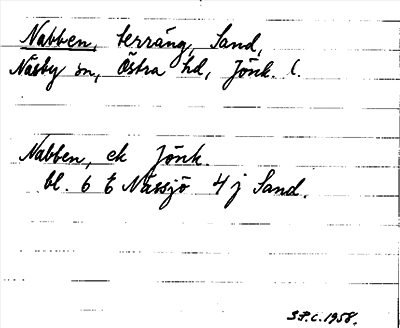 Nabben, terräng, Sand,
Näsby sn, Östra hd, Jönk. l.
Nabben, ek Jönk.
bl. 6 E Nässjö 4 j Sand.
S.P.C. 1958.